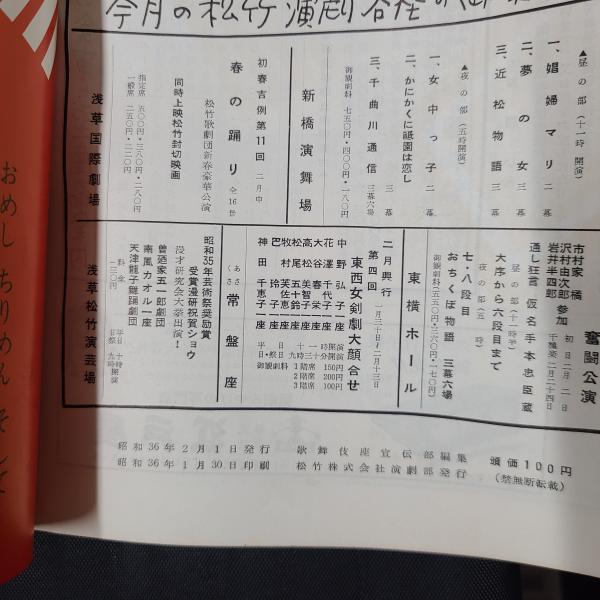 今月の松竹演劇各座の御
▲昼の部(十一時開演)
一、娼婦マリ 二幕
二、夢の女 三幕
三、近松物語 三幕
▲夜の部(五時開演)
一、女中っ子 二幕
二、かにかくに祇園は恋し 三幕
三、千曲川通信 三幕六場
御観劇料 七五〇円・四〇〇円・一八〇円
新橋演舞場
初春吉例第11回 二月中
春の踊り 全16景
松竹歌劇団新春豪華公演
同時上映松竹封切映画
指定席 五〇〇円・三八〇円・二八〇円
一般席 二五〇円・二二〇円
浅草国際劇場
奮闘公演
市村家橘
沢村由次郎 参加
岩井半四郎
初日二月二日
千穐楽二月二十四日
通し狂言 仮名手本忠臣蔵
昼の部(十一時半)
大序から六段目まで
夜の部(五時)
七・八段目
おちくぼ物語 三幕六場
御観劇料 五五〇円・三六〇円・一七〇円
東横ホール
二月興行 一月三十日/二月十三日
第四回
東西女剣劇大顔合せ
中野弘子一座
花澤千代子一座
大谷春栄一座
高松美智子一座
松尾五十鈴一座
牧村芙佐恵一座
巴玲子一座
神田千恵子一座
平日 一時開演
日・祭日 九時三十分開演
御観劇料 1階席 150円
2階席 200円
3階席 100円
あさくさ 常盤座
昭和35年芸術祭奨励賞
受賞漫研祝賀ショウ
漫才研究会大挙出演!
曽廼家五一郎劇団
南風カオル一座
天津龍子舞踊劇団
料金 一三〇円
平日 十時開演
日祭 九時開演
浅草松竹演芸場
昭和36年2月1日発行 歌舞伎座宣伝部編集
昭和36年1月30日印刷 松竹株式会社演劇部発行
頒価100円
(禁無断転載)
おめし ちりめん そして